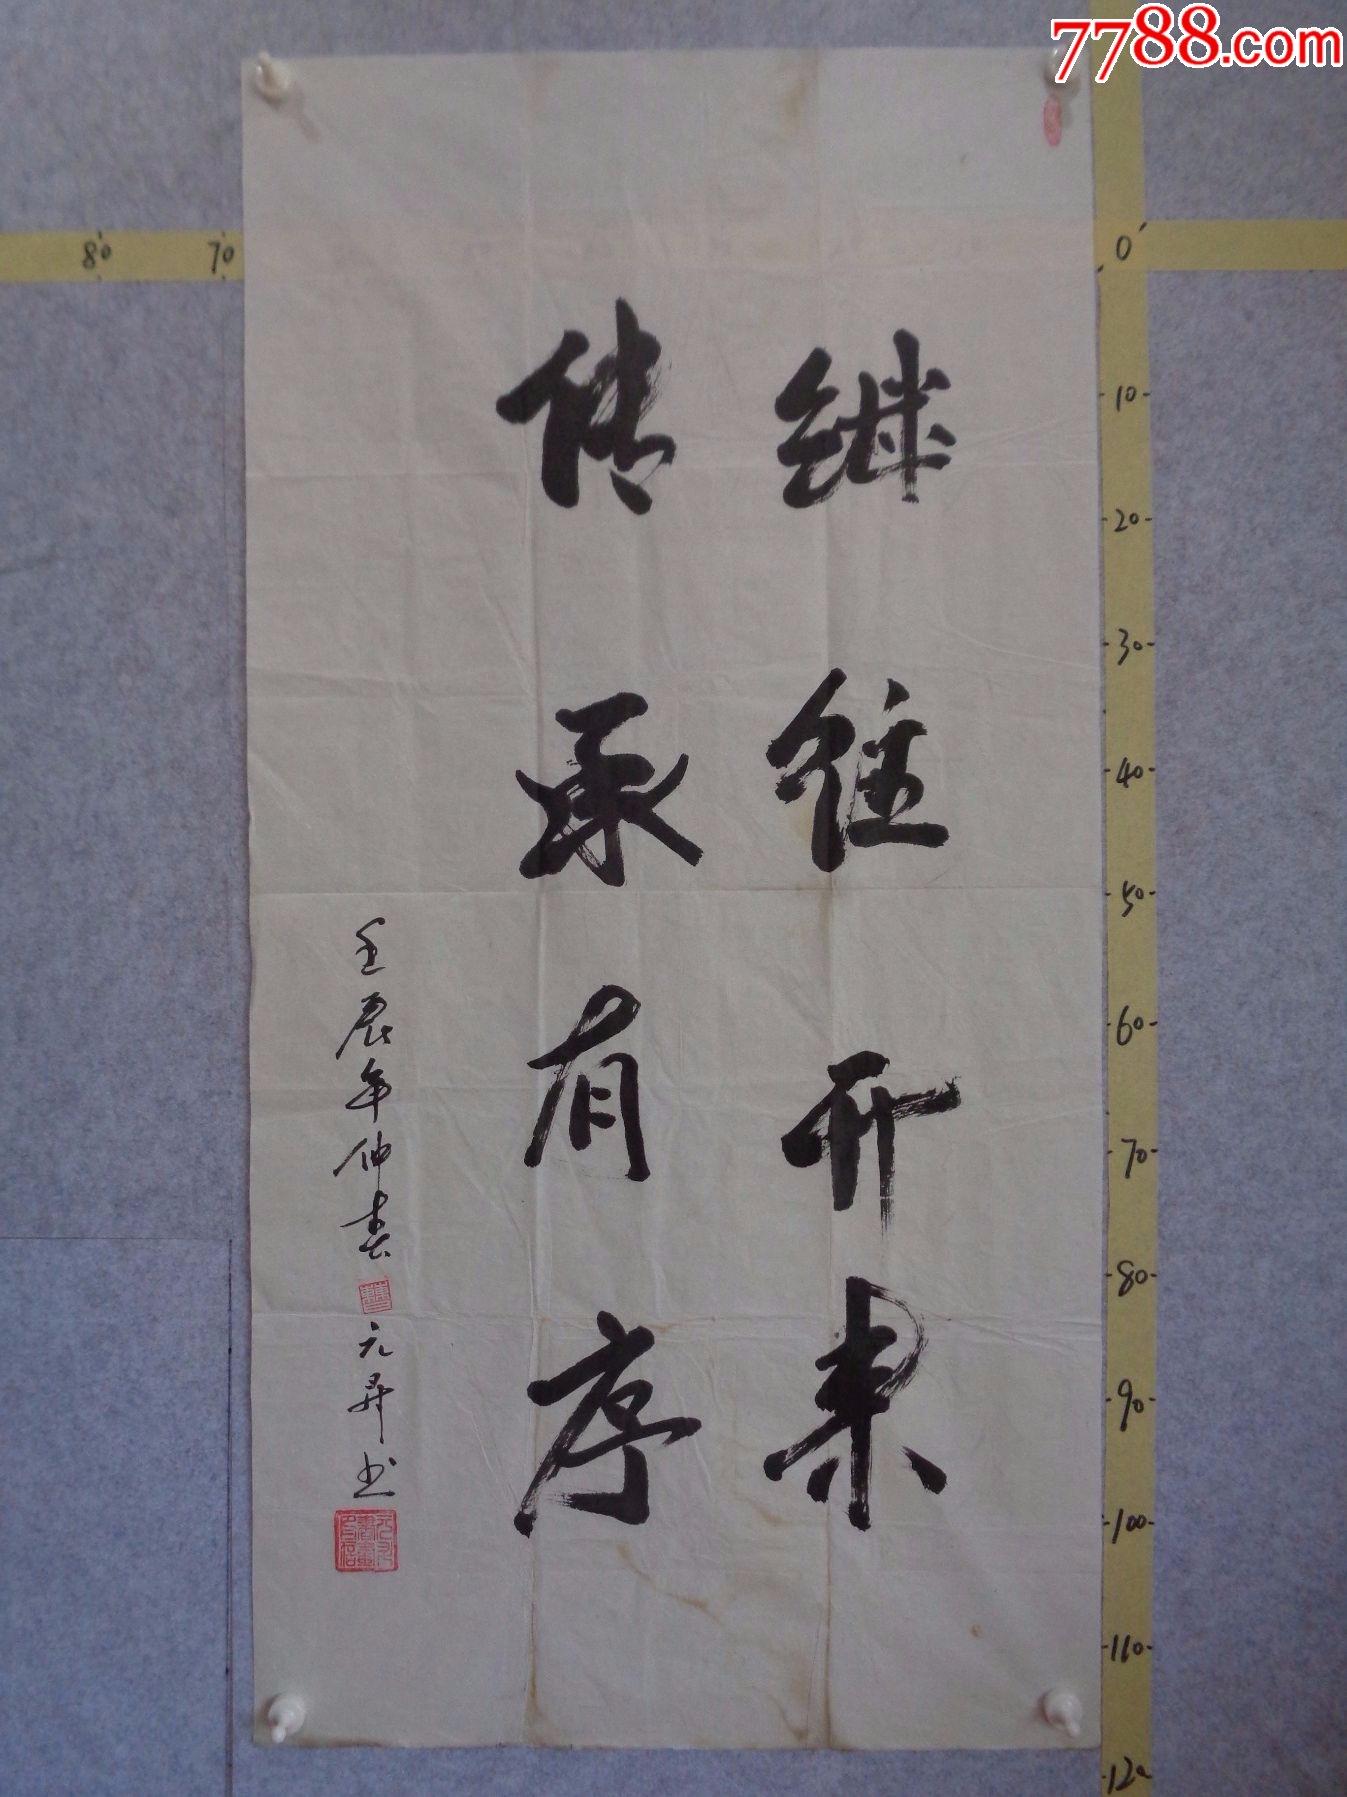 7788.com
继往开来
传承有序
壬辰年仲春
元昇书
80 70 0
10
20
30
40
50
60
70
80
90
100
110
120